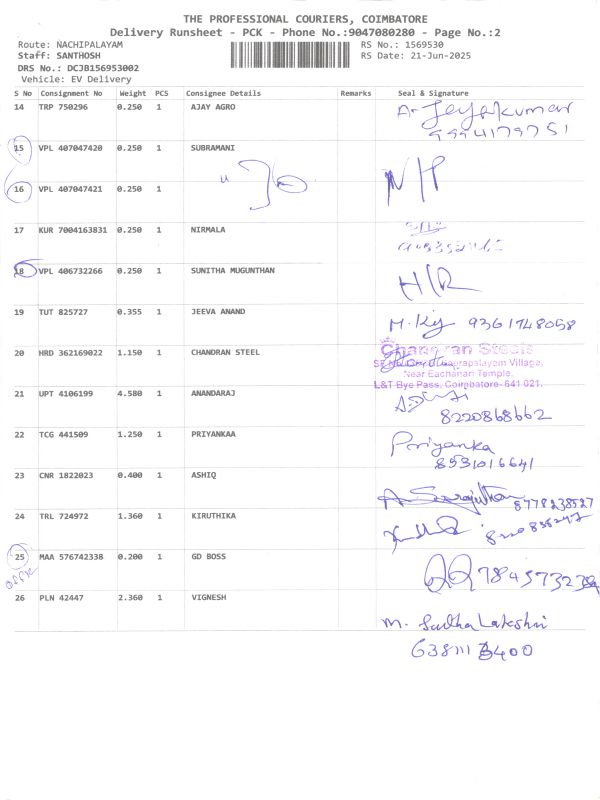 THE PROFESSIONAL COURIERS, COIMBATORE
Delivery Runsheet - PCK - Phone No.:9047080280 - Page No.:2
Route: NACHIPALAYAM RS No.: 1569530
Staff: SANTHOSH RS Date: 21-Jun-2025
DRS No.: DCJB156953002
Vehicle: EV Delivery
S No Consignment No Weight PCS Consignee Details Remarks Seal & Signature
14 TRP 750296 0.250 1 AJAY AGRO A. Jeyakumar
9994179751
15 VPL 407047420 0.250 1 SUBRAMANI
16 VPL 407047421 0.250 1
17 KUR 7004163831 0.250 1 NIRMALA
18 VPL 406732266 0.250 1 SUNITHA MUGUNTHAN
19 TUT 825727 0.355 1 JEEVA ANAND 9361748058
20 HRD 362169022 1.150 1 CHANDRAN STEEL Chandran Steels
Village,
Near Eachanari Temple,
L&T Bye Pass, Coimbatore-641 021.
21 UPT 4106199 4.580 1 ANANDARAJ
8220868662
22 TCG 441509 1.250 1 PRIYANKAA Priyanka
8531016641
23 CNR 1822023 0.400 1 ASHIQ 8778238527
24 TRL 724972 1.360 1 KIRUTHIKA
25 MAA 576742338 0.200 1 GD BOSS
office
26 PLN 42447 2.360 1 VIGNESH M. Sudha Lakshmi